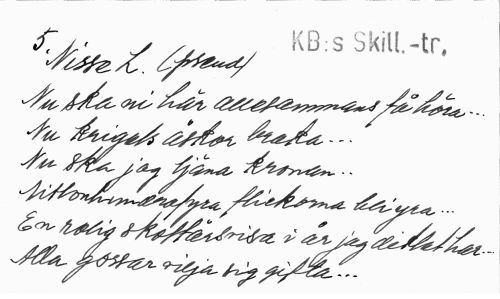 5 KB:s Skill.-tr.
Nisse L. (pseud)
Nu ska ni här allesammans få höra...
Nu krigets åskor braka...
Nu ska jag tjäna kronan..
Nittonhundrafyra flickorna bli yra...
En rolig skottårsvisa i år jag diktat har...
Alla gossar vilja sig gifta...